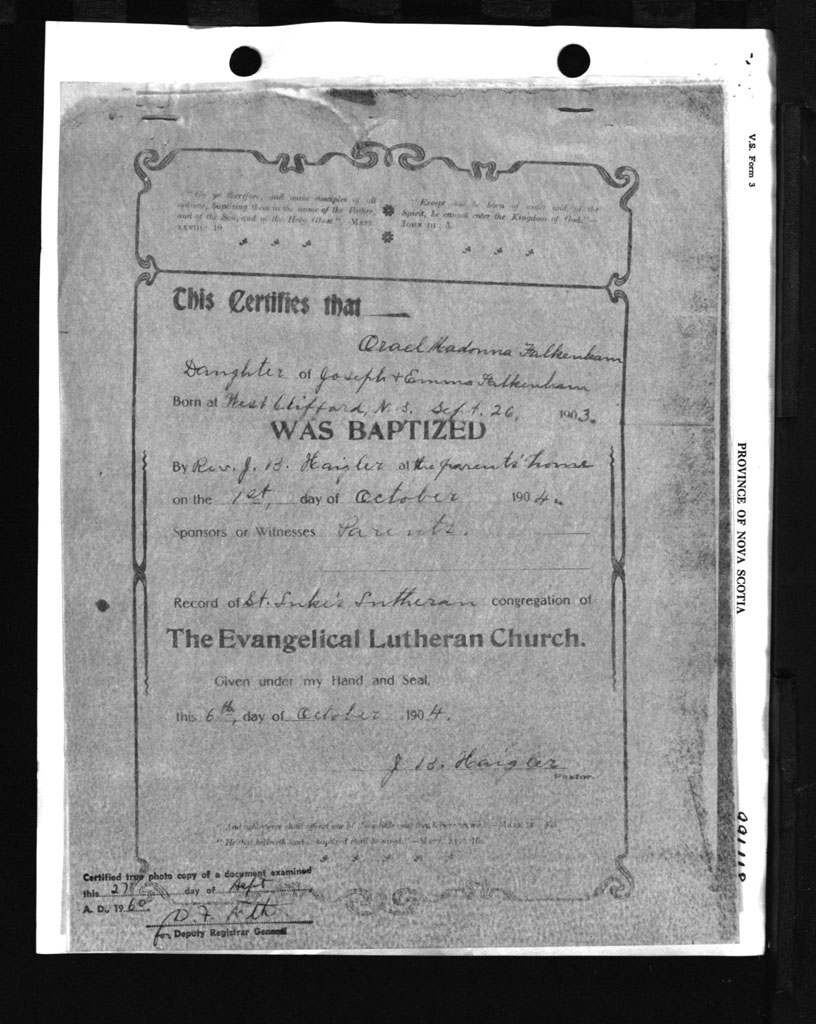 "Go ye therefore, and make disciples of all
nations, baptizing them in the name of the Father,
and of the Son, and of the Holy Ghost". MATT.
XXVIII: 19.
"Except one be born of water and of the
Spirit, he cannot enter the Kingdom of God."—
JOHN III: 5.
This Certifies that
Orael Madonna Falkenham
Daughter of Joseph & Emma Falkenham
Born at West Clifford, N. S. Sept. 26, 1903.
WAS BAPTIZED
By Rev. J. B. Haigler at the parents' home
on the 1st, day of October 1904.
Sponsors or Witnesses Parents.
Record of St. Luke's Lutheran congregation of
The Evangelical Lutheran Church.
Given under my Hand and Seal,
this 6th, day of October 1904.
J. B. Haigler
Pastor.
"He that believeth and baptized shall be
Certified true photo copy of a document examined
this 27 day of Sept
A. D., 1960
for Deputy Registrar General
V.S. Form 3
PROVINCE OF NOVA SCOTIA